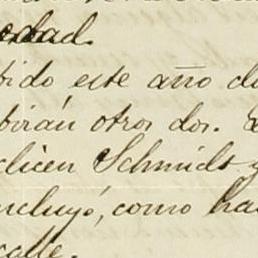 edad.
tido este año do
birán otros dos. L
dicen Schmidt y
ncluyó, como ha
calle.